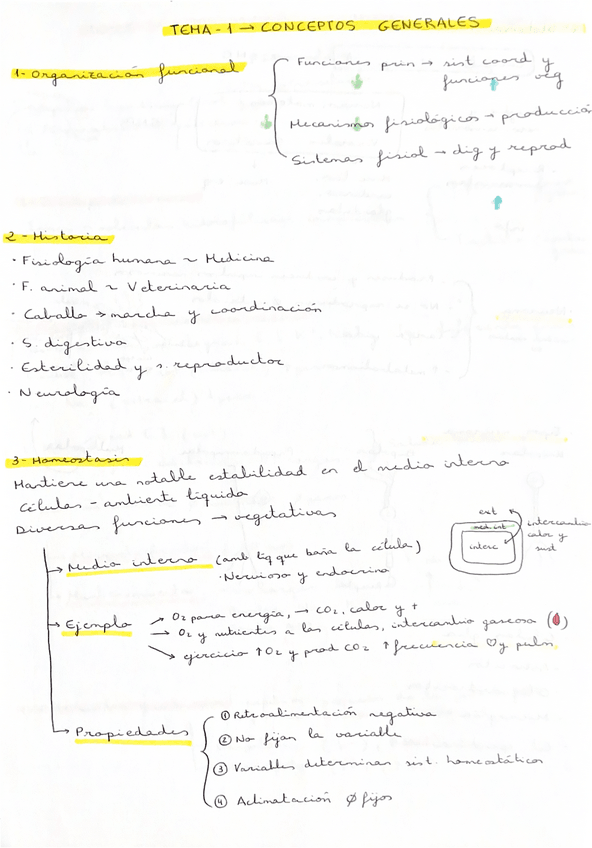 TEMA-1 → CONCEPTOS GENERALES
1- Organización funcional
Funciones prin → sist coord y
funciones veg
Mecanismos fisiológicos → producción
Sistemas fisiol → dig y reprod
2 - Historia
· Fisiología humana ~ Medicina
· F. animal ~ Veterinaria
· Caballo → marcha y coordinación
· S. digestivo
· Esterilidad y s. reproductor
· Neurología
3- Homeostasis
Mantiene una notable estabilidad en el medio interno
Células - ambiente líquido
Diversas funciones → vegetativas
→ Medio interno (amb liq que baña la célula)
· Nervioso y endocrino
ext
med int
interc
intercambio
calor y
sust
→ Ejemplo
→ O2 para energía, → CO2, calor y +
→ O2 y nutrientes a las células, intercambio gaseoso (🩸)
→ ejercicio ↑O2 y prod CO2 ↑ frecuencia ♡ y pulm
→ Propiedades
① Retroalimentación negativa
② No fijan la variable
③ Variables determinan sist. homeostáticos
④ Aclimatación Ø fijos